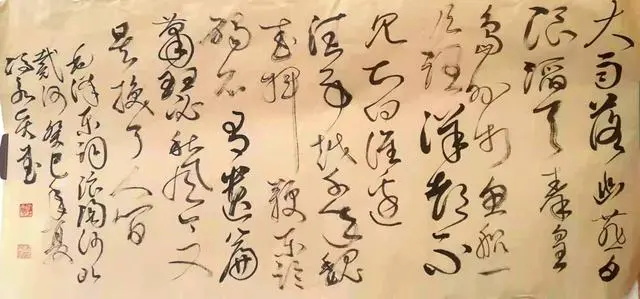 大雨落幽燕白
浪滔天秦皇
岛外打鱼船一
片汪洋都不
见知向谁边
往事越千年魏
武挥鞭东临
碣石有遗篇
萧瑟秋风今又
是换了人间
毛泽东词浪淘沙北
戴河癸巳年夏